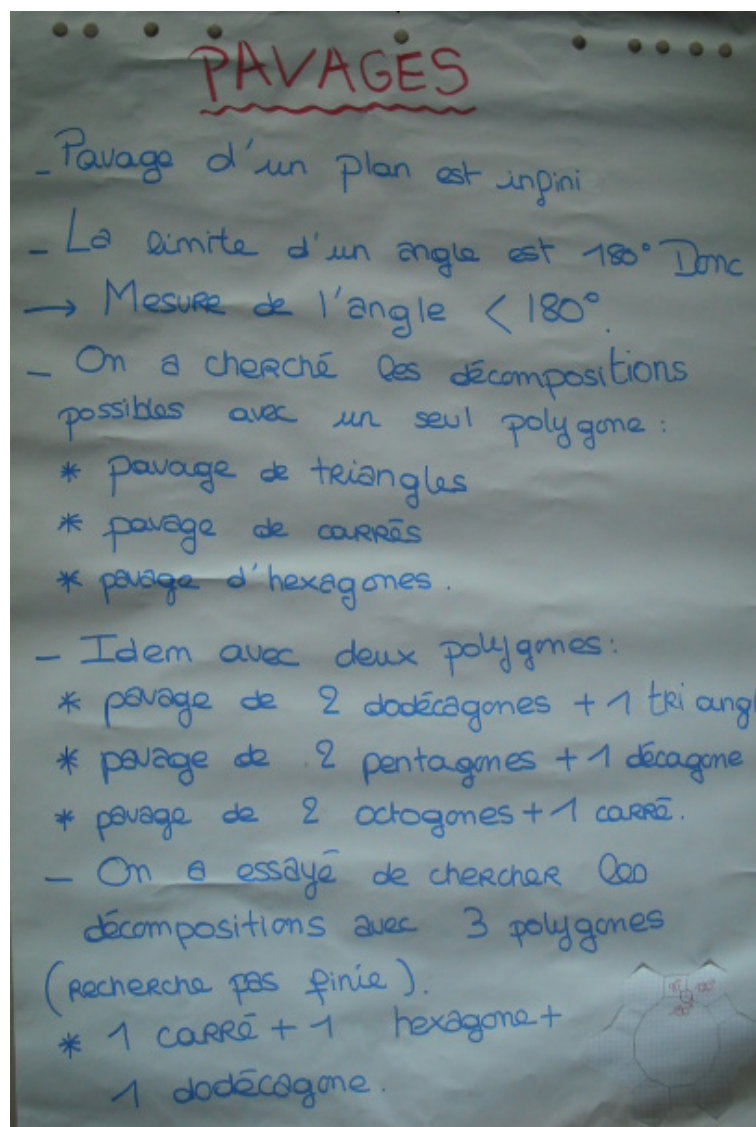 PAVAGES
- Pavage d'un plan est infini
- La limite d'un angle est 180° Donc
→ Mesure de l'angle < 180°.
- On a cherché les décompositions
possibles avec un seul polygone :
* pavage de triangles
* pavage de carrés
* pavage d'hexagones.
- Idem avec deux polygones:
* pavage de 2 dodécagones + 1 triangl
* pavage de 2 pentagones + 1 décagone
* pavage de 2 octogones + 1 carré.
- On a essayé de chercher les
décompositions avec 3 polygones
(Recherche pas finie).
* 1 carré + 1 hexagone +
1 dodécagone.